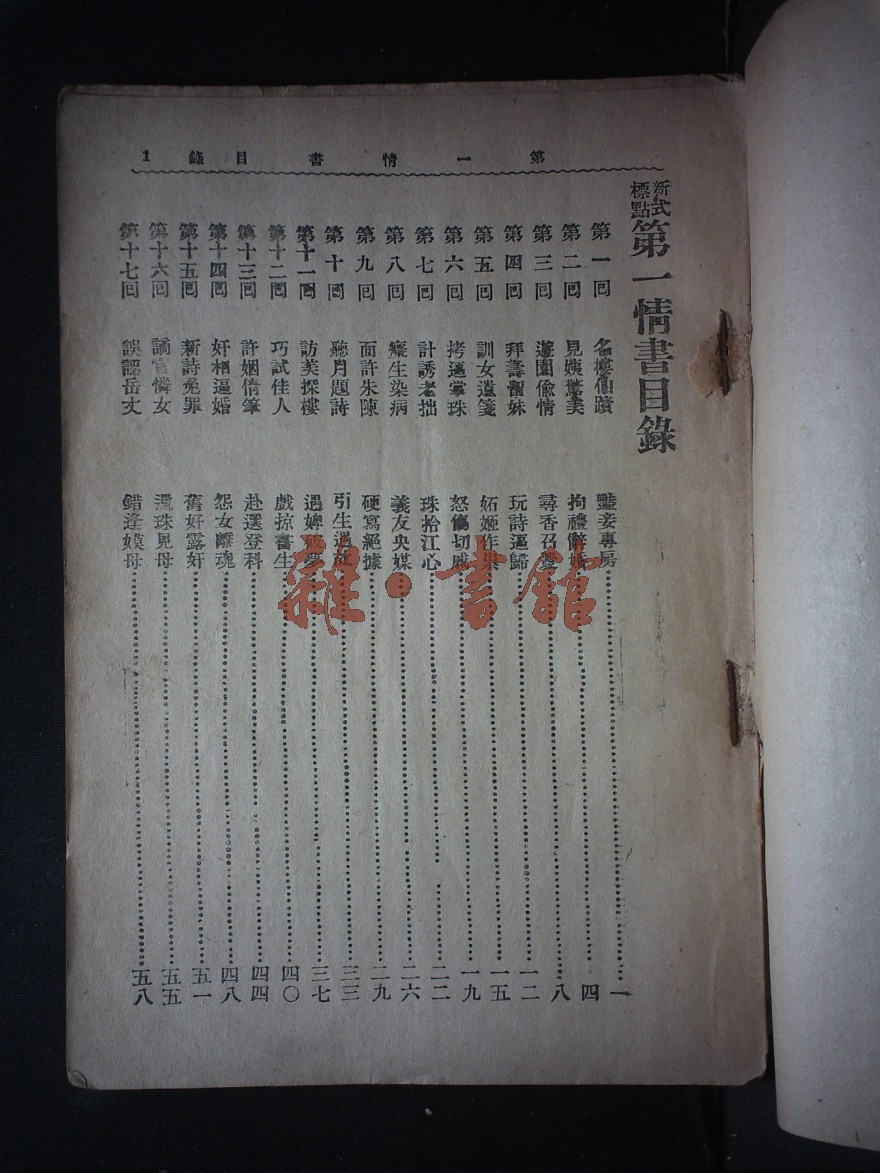 第一情書目錄 1
新式標點第一情書目錄
第一回 名樓仙蹟 豔妾專房……一
第二回 見姨驚美 拘禮辭婚……四
第三回 遊園偷情 尋香召釁……八
第四回 拜壽留妹 玩詩逼歸……一二
第五回 訓女遺箋 妬姬作祟……一五
第六回 拷逼掌珠 怒傷切戚……一九
第七回 計誘老拙 珠拾江心……二二
第八回 癡生染病 義友央媒……二六
第九回 面許朱陳 硬寫絕據……二九
第十回 聽月題詩 引生遇……三三
第十一回 訪美探樓 遇婢破夢……三七
第十二回 巧試佳人 戲掠書生……四〇
第十三回 許姻倩筆 赴選登科……四四
第十四回 奸相逼婚 怨女離魂……四八
第十五回 新詩免罪 舊奸露奸……五一
第十六回 謫官憐女 還珠見母……五五
第十七回 誤認岳丈 錯逢嫫母……五八
雜·書館